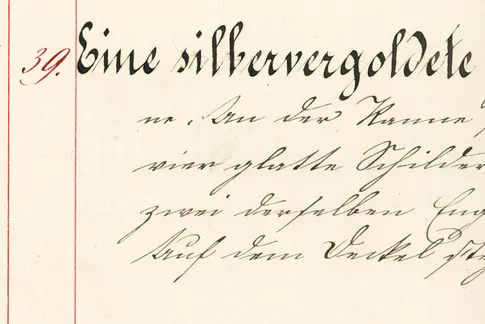 39. Eine silbervergoldete
ne. An der Kanne
vier glatte Schilder
zwei derselben Eng
Auf dem Deckel